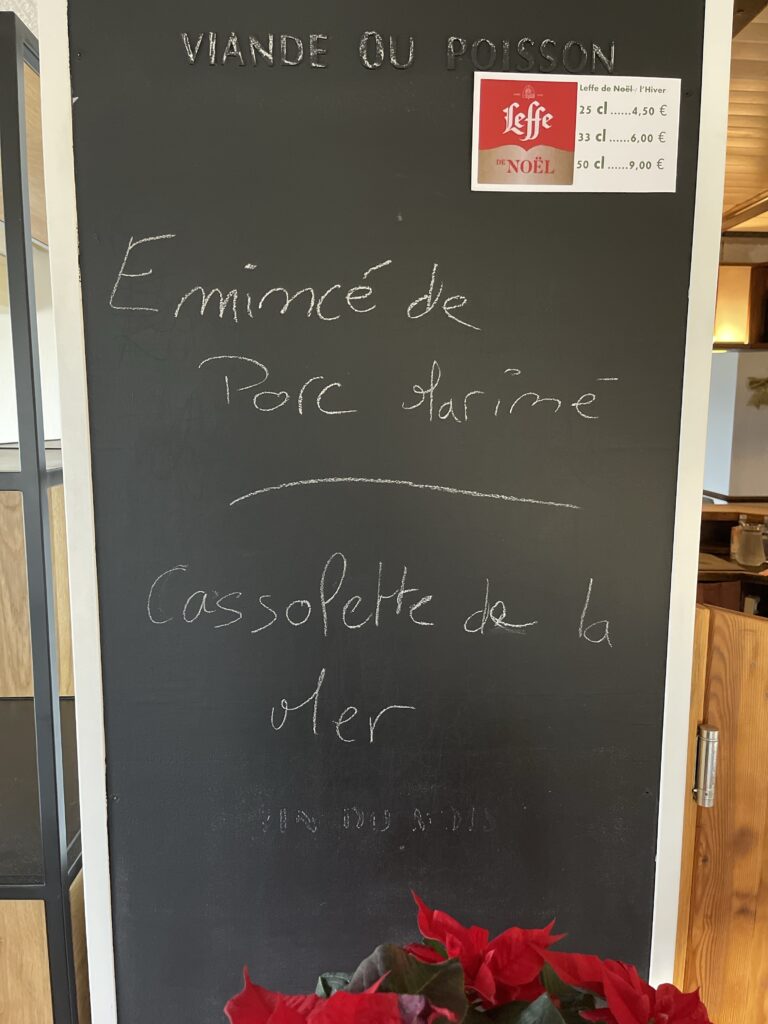 VIANDE OU POISSON
Leffe
DE NOËL
Leffe de Noël / l'Hiver
25 cl ......4,50 €
33 cl ......6,00 €
50 cl ......9,00 €
Emincé de
Porc Mariné
Cassolette de la
Mer
VIN DU MOIS